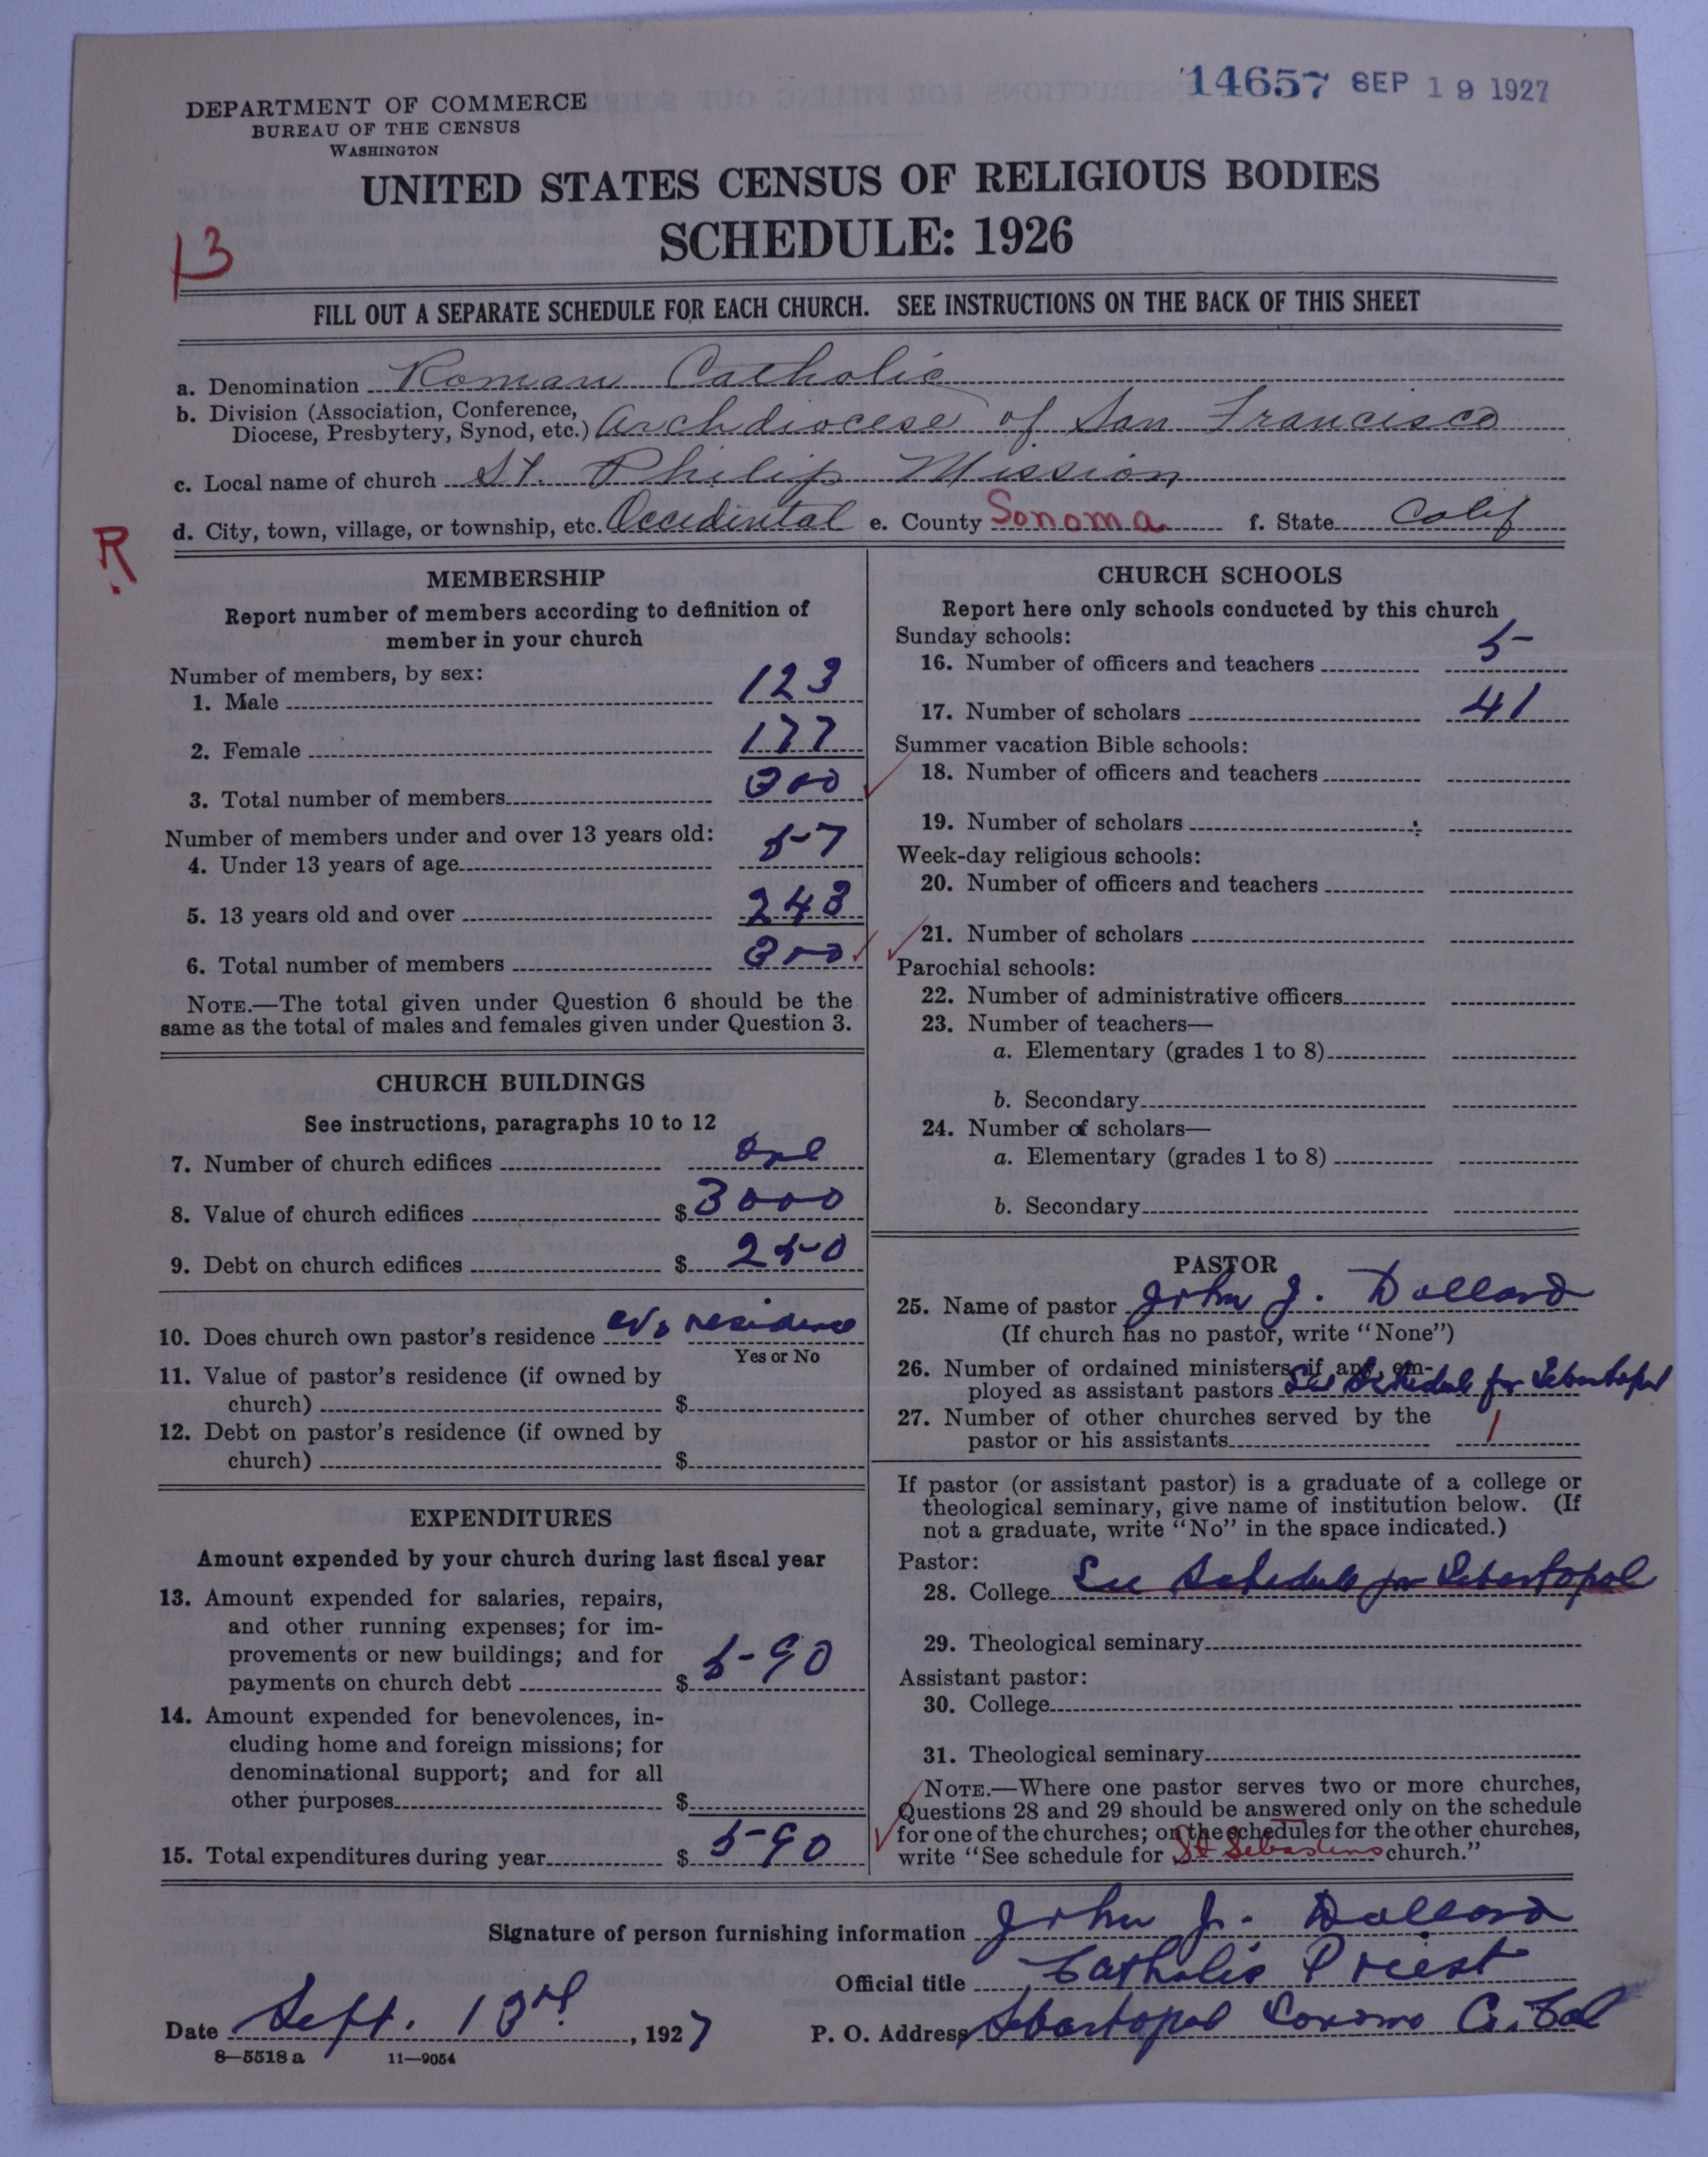 14657 SEP 19 1927
DEPARTMENT OF COMMERCE
BUREAU OF THE CENSUS
WASHINGTON
UNITED STATES CENSUS OF RELIGIOUS BODIES
SCHEDULE: 1926
13
FILL OUT A SEPARATE SCHEDULE FOR EACH CHURCH. SEE INSTRUCTIONS ON THE BACK OF THIS SHEET
a. Denomination Roman Catholic
b. Division (Association, Conference,
Diocese, Presbytery, Synod, etc.) Archdiocese of San Francisco
c. Local name of church St. Philip Mission
d. City, town, village, or township, etc. Occidental e. County Sonoma f. State Calif
R
MEMBERSHIP
Report number of members according to definition of
member in your church
Number of members, by sex:
1. Male 123
2. Female 177
3. Total number of members 300
Number of members under and over 13 years old:
4. Under 13 years of age 57
5. 13 years old and over 243
6. Total number of members 300
NOTE.—The total given under Question 6 should be the
same as the total of males and females given under Question 3.
CHURCH BUILDINGS
See instructions, paragraphs 10 to 12
7. Number of church edifices one
8. Value of church edifices $ 3000
9. Debt on church edifices $ 250
10. Does church own pastor's residence No residence
Yes or No
11. Value of pastor's residence (if owned by
church) $
12. Debt on pastor's residence (if owned by
church) $
EXPENDITURES
Amount expended by your church during last fiscal year
13. Amount expended for salaries, repairs,
and other running expenses; for im-
provements or new buildings; and for
payments on church debt $ 590
14. Amount expended for benevolences, in-
cluding home and foreign missions; for
denominational support; and for all
other purposes $
15. Total expenditures during year $ 590
CHURCH SCHOOLS
Report here only schools conducted by this church
Sunday schools:
16. Number of officers and teachers 5
17. Number of scholars 41
Summer vacation Bible schools:
18. Number of officers and teachers
19. Number of scholars
Week-day religious schools:
20. Number of officers and teachers
21. Number of scholars
Parochial schools:
22. Number of administrative officers
23. Number of teachers—
a. Elementary (grades 1 to 8)
b. Secondary
24. Number of scholars—
a. Elementary (grades 1 to 8)
b. Secondary
PASTOR
25. Name of pastor John J. Dollard
(If church has no pastor, write "None")
26. Number of ordained ministers, if any, em-
ployed as assistant pastors See Schedule for Sebastopol
27. Number of other churches served by the
pastor or his assistants 1
If pastor (or assistant pastor) is a graduate of a college or
theological seminary, give name of institution below. (If
not a graduate, write "No" in the space indicated.)
Pastor:
28. College See Schedule for Sebastopol
29. Theological seminary
Assistant pastor:
30. College
31. Theological seminary
NOTE.—Where one pastor serves two or more churches,
Questions 28 and 29 should be answered only on the schedule
for one of the churches; on the schedules for the other churches,
write "See schedule for St Sebastians church."
Signature of person furnishing information John J. Dollard
Official title Catholic Priest
Date Sept. 13rd, 1927 P. O. Address Sebastopol Sonoma Co. Cal
8—5518 a 11—9054